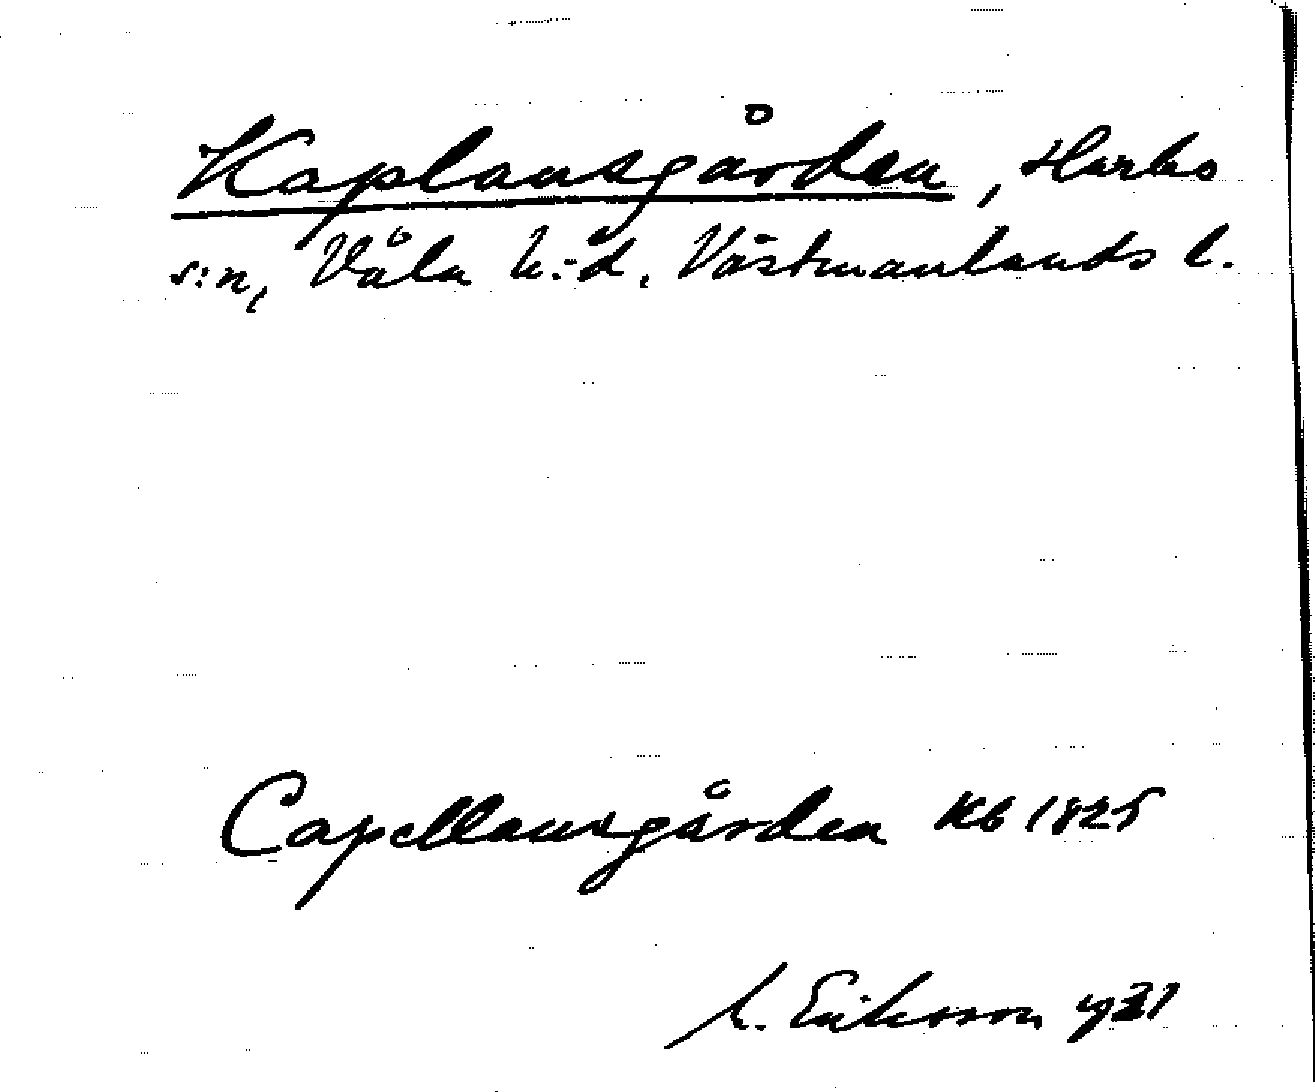 Kaplansgården, Harbo
s:n, Våla h:d, Västmanlands l.
Capellansgården Kb 1825
Eriksson